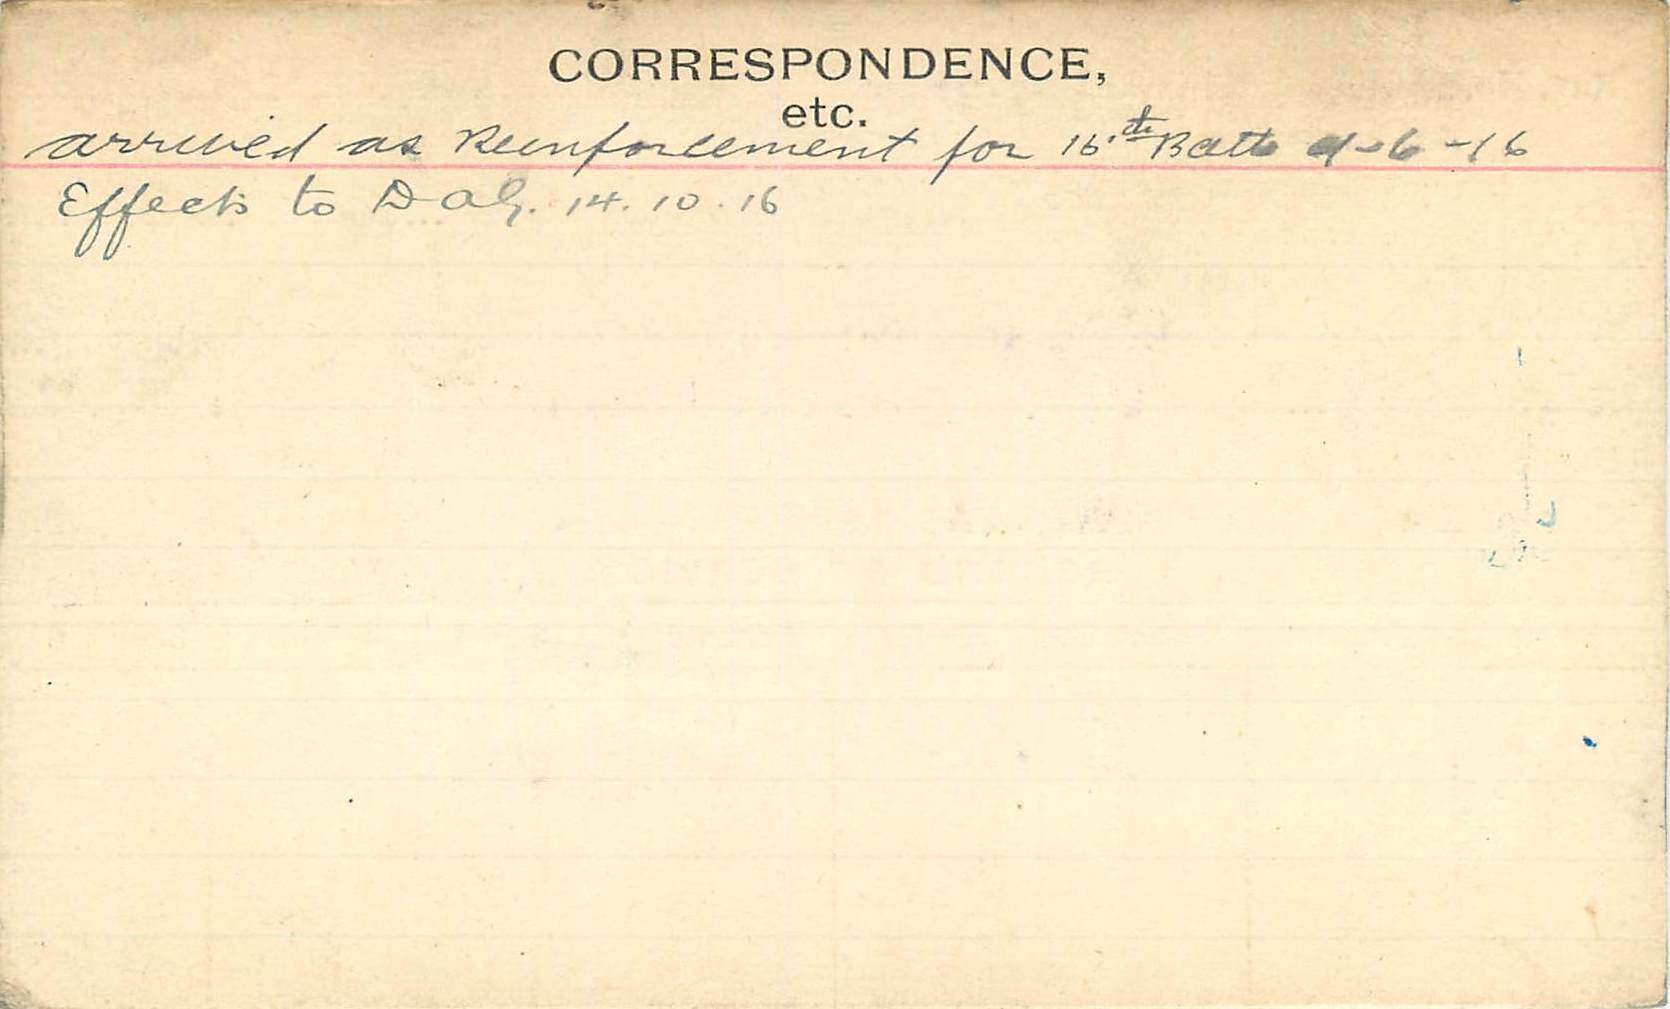 CORRESPONDENCE,
etc.
arrived as Reinforcement for 15th Batt 9-6-16
Effects to D a G. 14.10.16